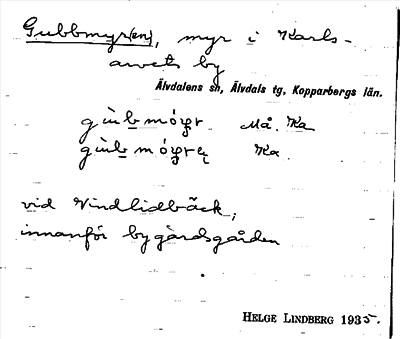 Gubbmyr(en), myr i Karls-
arvets by
Älvdalens sn, Älvdals tg, Kopparbergs län.
Må. Ka
Ka.
vid Vindlidbäck,
innanför bygårdsgården
HELGE LINDBERG 1935.